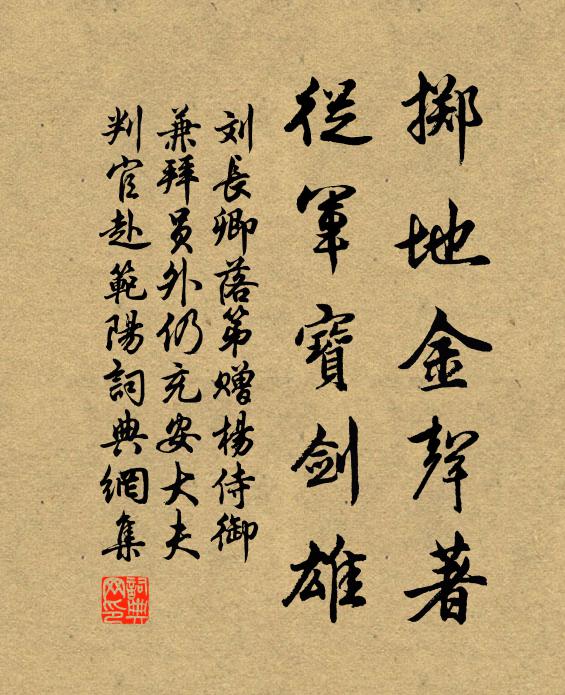 掷地金聲著
從軍寶劍雄
刘長卿落第赠楊侍御
兼拜員外仍充安大夫
判官赴範陽詞典網集
詞典网印